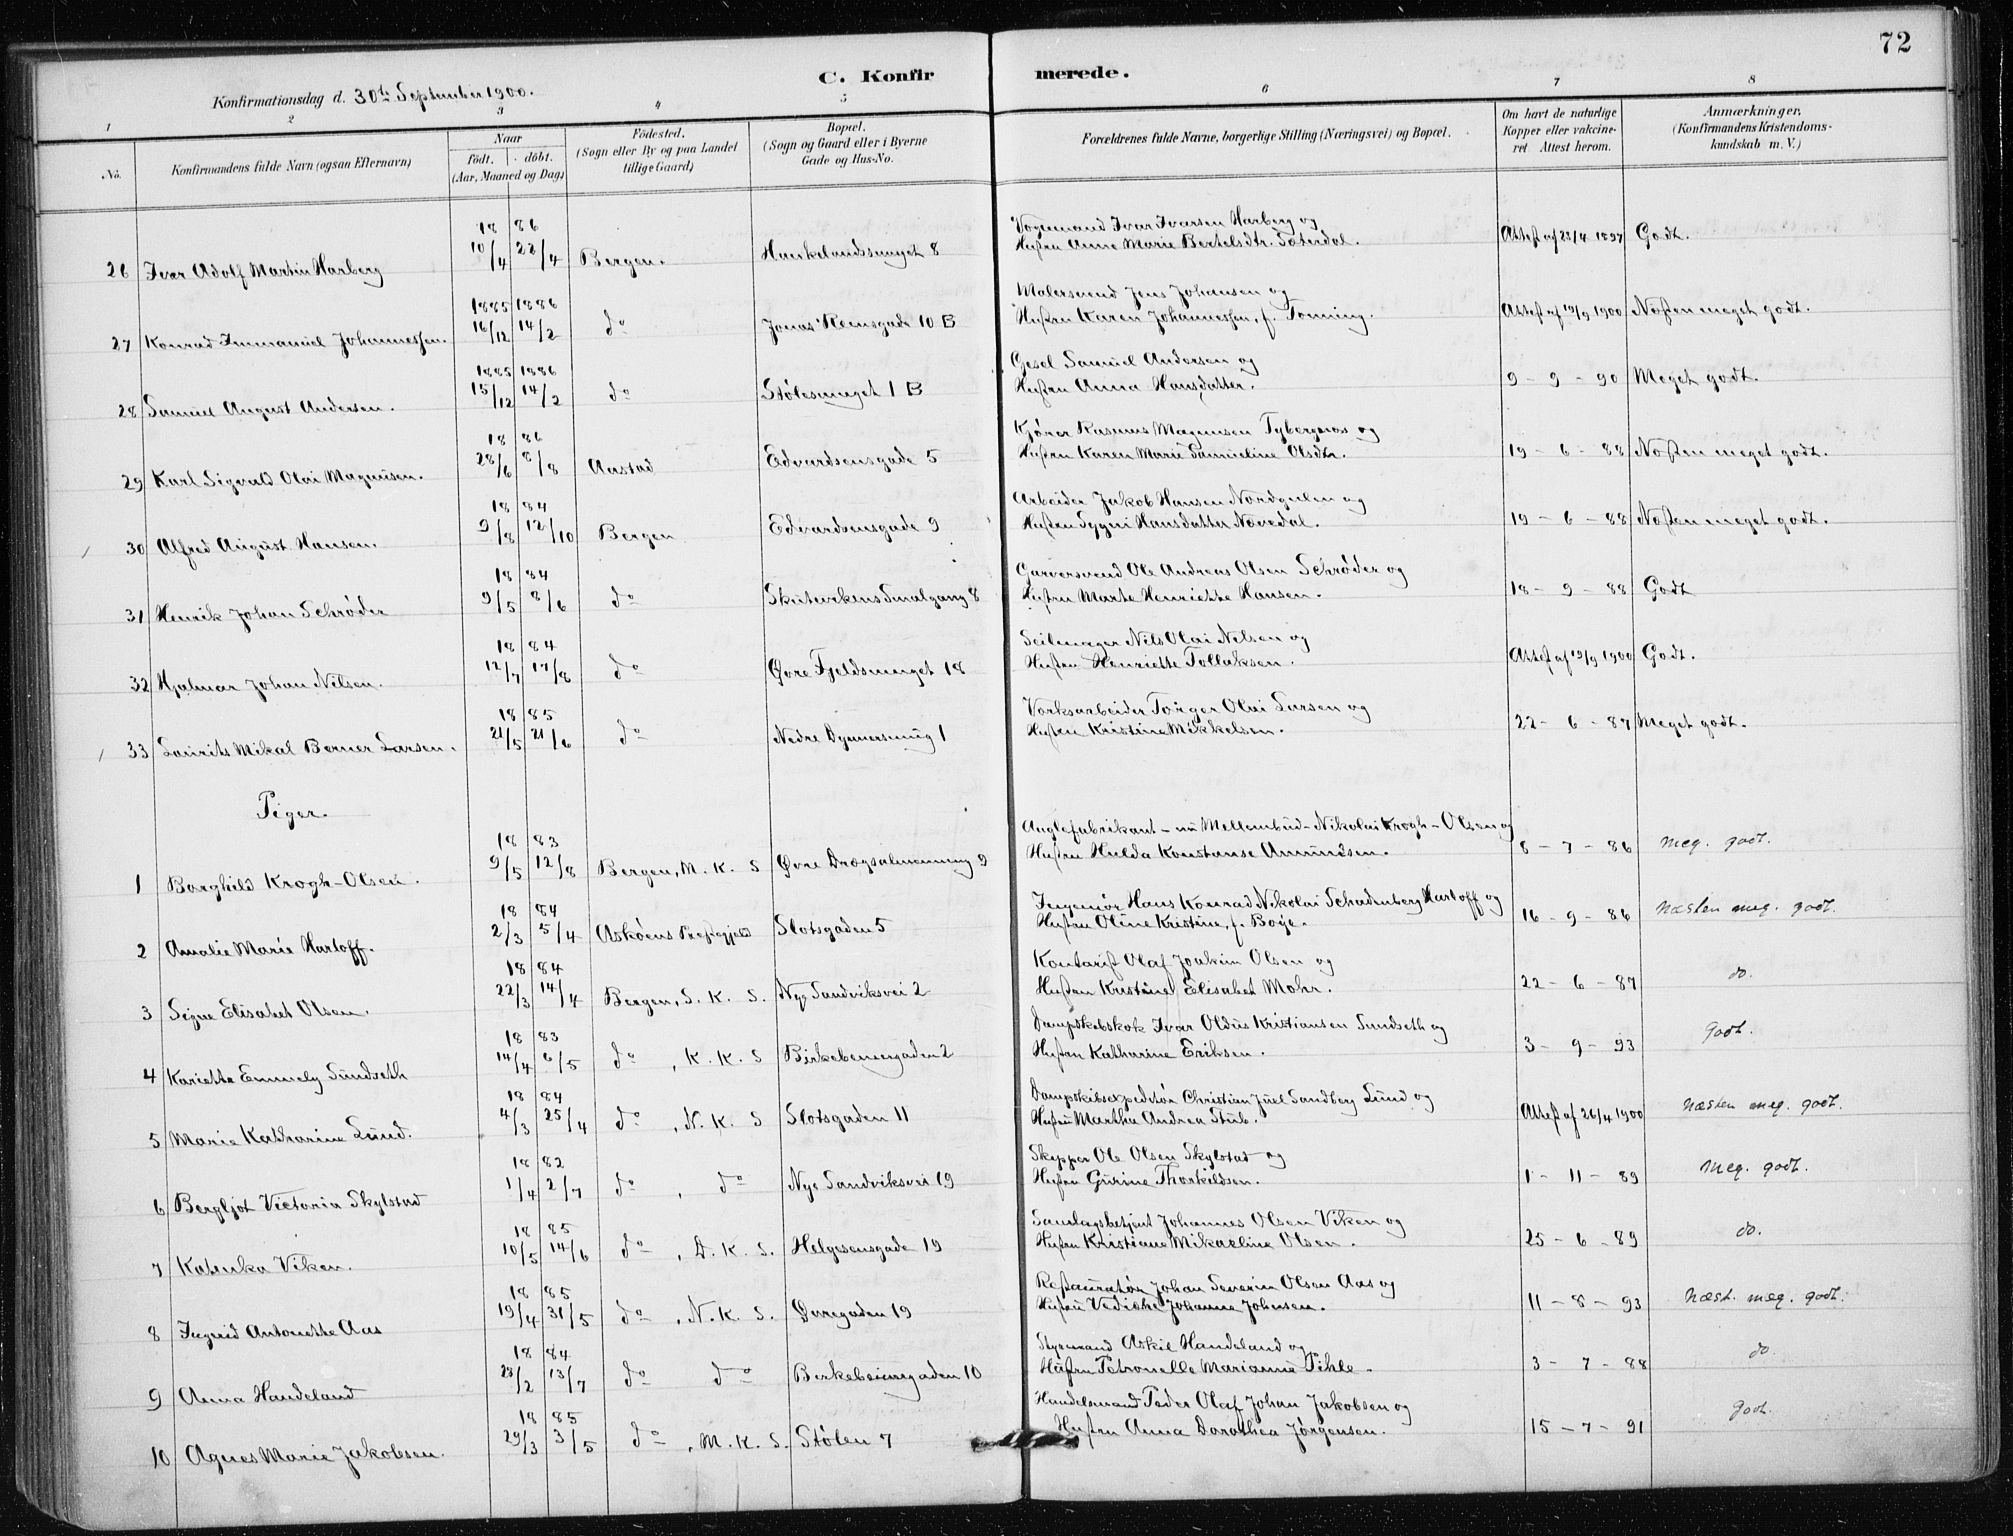 72
C. Konfirmerede.
Konfirmationsdag d. 30te September 1900.
1 2 3 4 5 6 7 8
No.
Konfirmandens fulde Navn (ogsaa Efternavn)
Naar
födt. döbt.
(Aar, Maaned og Dag)
Födested.
(Sogn eller By og paa Landet
tillige Gaard)
Bopæl.
(Sogn og Gaard eller i Byerne
Gade og Hus-No.
Forældrenes fulde Navne, borgerlige Stilling (Næringsvei) og Bopæl.
Om havt de naturlige
Kopper eller vakcine-
ret Attest herom.
Anmærkninger,
(Konfirmandens Kristendoms-
kundskab m. V.)
18 86
Vognmand Ivar Ivarsen Harberg og
26 Ivar Adolf Martin Harberg 10/4 22/4 Bergen. Haukelandssmuget 8 Hustru Anne Marie Bertelsdtr. Sæterdal. Attest af 28/4 1897 Godt.
1885 1886
Malersvend Jens Johansen og
27 Konrad Immanuel Johannessen. 16/12 14/2 do Jonas Reinsgade 10 B Hustru Karen Johannessen, f. Tonning. Attest af 19/9 1900 Næsten meget godt.
1885 1886
Gesel Samuel Andersen og
28 Samuel August Andersen. 15/12 14/2 do Stølesmuget 1 B Hustru Anna Hansdatter. 9 - 9 - 90 Meget godt.
18 86
Kjører Rasmus Magnusen Tybergnes og
29 Karl Sigvald Olai Magnusen. 28/6 8/8 Aastad Edvardsensgade 5 Hustru Karen Marie Samueline Olsdtr. 19 - 6 - 88 Næsten meget godt.
18 84
Arbeider Jakob Hansen Nordgulen og
30 Alfred August Hansen. 9/8 12/10 Bergen Edvardsensgade 9 Hustru Sygni Hansdatter Novedal. 19 - 6 - 88 Næsten meget godt.
18 84
Garversvend Ole Andreas Olsen Schrøder og
31 Henrik Johan Schrøder 9/5 8/6 do Skutevikens Smalgang 8 Hustru Marte Henriette Hansen. 18 - 9 - 88 Godt
18 84
Seilmager Nils Olai Nelsen og
32 Hjalmar Johan Nilsen. 12/7 17/8 do Øvre Fjeldsmuget 18 Hustru Henriette Tollaksen. Attest af 19/9 1900 Godt.
18 85
Værksarbeider Torger Olai Larsen og
33 Laurits Mikal Berner Larsen. 21/5 21/6 do Nedre Dynnersmug 1 Hustru Kristine Mikkelsen. 22 - 6 - 87 Meget godt.
Piger.
18 83
Anglefabrikant - nu Mellembud - Nikolai Krogh-Olsen og
1 Borghild Krogh-Olsen. 9/5 12/8 Bergen, M. K. S Øvre Dragsalmenning 9 Hustru Hulda Konstanse Amundsen. 8 - 7 - 86 meg. godt.
18 84
Ingeniør Hans Konrad Nikolai Schadenberg Hartoff og
2 Amalie Marie Hartoff. 2/3 5/4 Askøens Præstegjeld Slotsgaden 5 Hustru Oline Kristine, f. Boye. 16 - 9 - 86 næsten meg. godt.
18 84
Kontorist Olaf Joakim Olsen og
3 Signe Elisabet Olsen. 22/3 14/4 Bergen, S. K. S. Nye Sandviksvei 2 Hustru Kristine Elisabet Mohr. 22 - 6 - 87 do.
18 83
Dampskibskok Ivar Oldus Kristiansen Sundseth og
4 Kariette Emmely Sundseth 14/4 6/5 do, K. K. S Birkebenergaden 2 Hustru Katharine Eriksen. 3 - 9 - 93 Godt.
18 84
Dampskibsexpeditør Christian Juel Sandberg Lund og
5 Marie Katharine Lund. 4/3 25/4 do, N. K. S Slotsgaden 11 Hustru Martha Andrea Stub. Attest af 26/4 1900 næsten meg. godt.
18 82
Skipper Ole Olsen Skylstad og
6 Bergljot Victoria Skylstad 1/4 2/7 do, do Nye Sandviksvei 19 Hustru Gurine Thorkildsen. 1 - 11 - 89 meg. godt.
18 85
Samlagsbetjent Johannes Olsen Viken og
7 Katinka Viken. 10/5 14/6 do, D. K. S. Helgesensgade 19 Hustru Kristiane Mikaeline Olsen. 25 - 6 - 89 do.
18 85
Restauratør Johan Severin Olsen Aas og
8 Ingrid Antonette Aas 19/4 31/5 do, N. K. S. Øvregaden 19 Hustru Vedicke Johanne Johnsen. 11 - 8 - 93 næst. meg. godt.
18 84
Styrmand Askil Handeland og
9 Anna Handeland 28/2 13/7 do do Birkebeinergaden 10 Hustru Petronelle Marianne Pihle. 3 - 7 - 88 do.
18 85
Handelsmand Peder Olaf Johan Jakobsen og
10 Agnes Marie Jakobsen. 29/3 3/5 do, M. K. S. Stølen 7 Hustru Anna Dorothea Jørgensen. 15 - 7 - 91 godt.